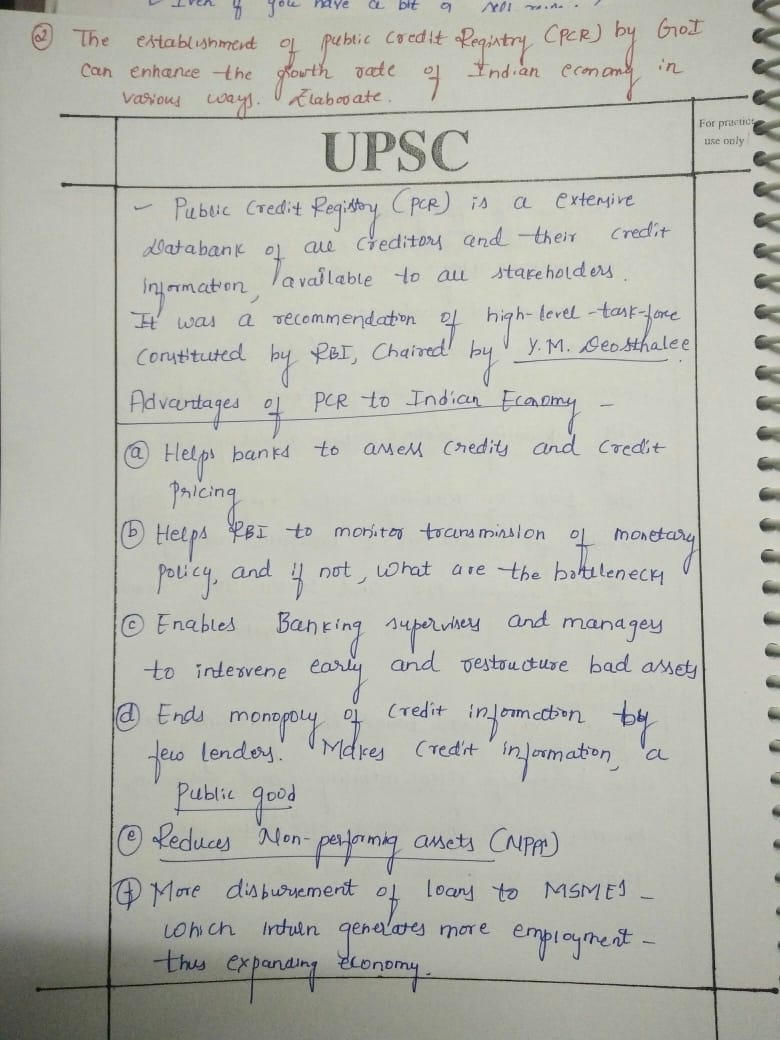 Even if you have a bit of
Q2 The establishment of public Credit Registry (PCR) by GoI
can enhance the growth rate of Indian economy in
various ways. Elaborate.
For practice
use only
UPSC
- Public Credit Registry (PCR) is a extensive
databank of all creditors and their credit
information, available to all stakeholders.
It was a recommendation of high-level-task-force
constituted by RBI, Chaired by Y.M. Deosthalee
Advantages of PCR to Indian Economy -
(a) Helps banks to assess credits and credit
pricing
(b) Helps RBI to monitor transmission of monetary
policy, and if not, what are the bottlenecks
(c) Enables Banking supervisers and manages
to intervene early and restructure bad assets
(d) Ends monopoly of credit information by
few lenders. Makes credit information, a
Public good
(e) Reduces Non-performing assets (NPAs)
(f) More disbursement of loans to MSMEs -
which inturn generates more employment -
thus expanding economy.